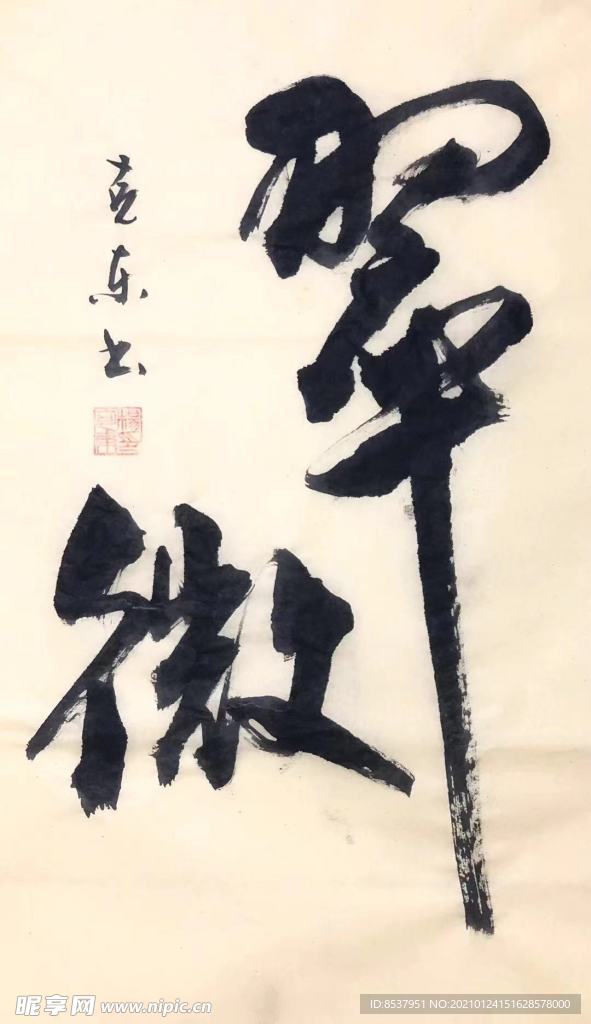 翠微
克东书
昵享网 www.nipic.cn
ID:8537951 NO:20210124151628578000